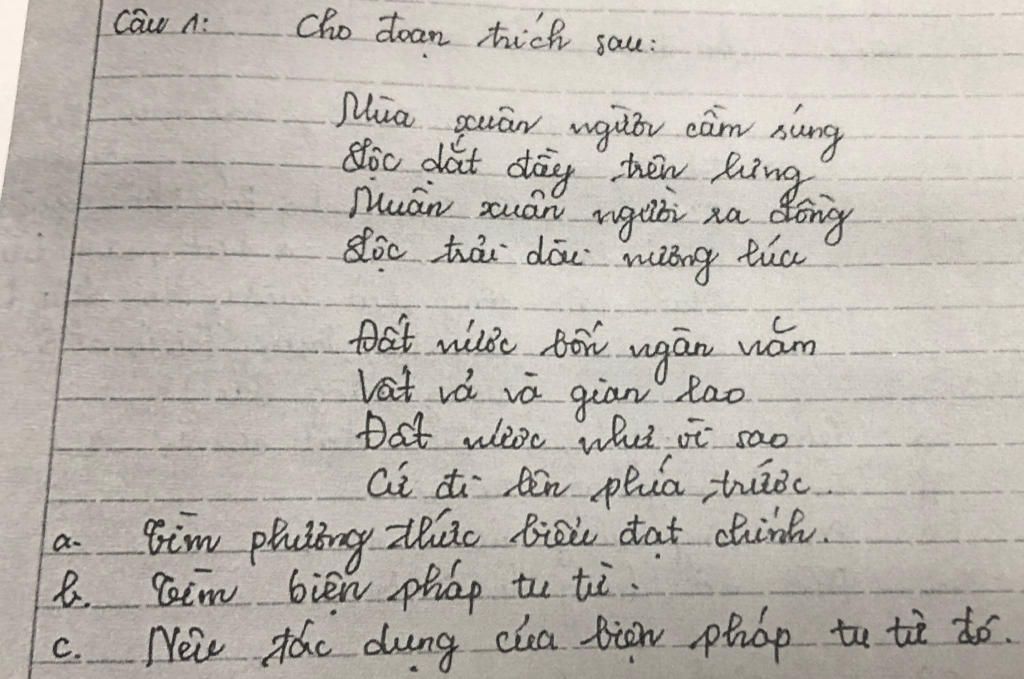 Câu 1: Cho đoạn trích sau:
Mùa xuân người cầm súng
Lộc dắt đầy trên lưng
Muân xuân người ra đồng
Lộc trải dài nương lúa
Đất nước bốn ngàn năm
Vất vả và gian lao
Đất nước như vì sao
Cứ đi lên phía trước.
a. Tìm phương thức biểu đạt chính.
b. Tìm biện pháp tu từ.
c. Nêu tác dụng của biện pháp tu từ đó.